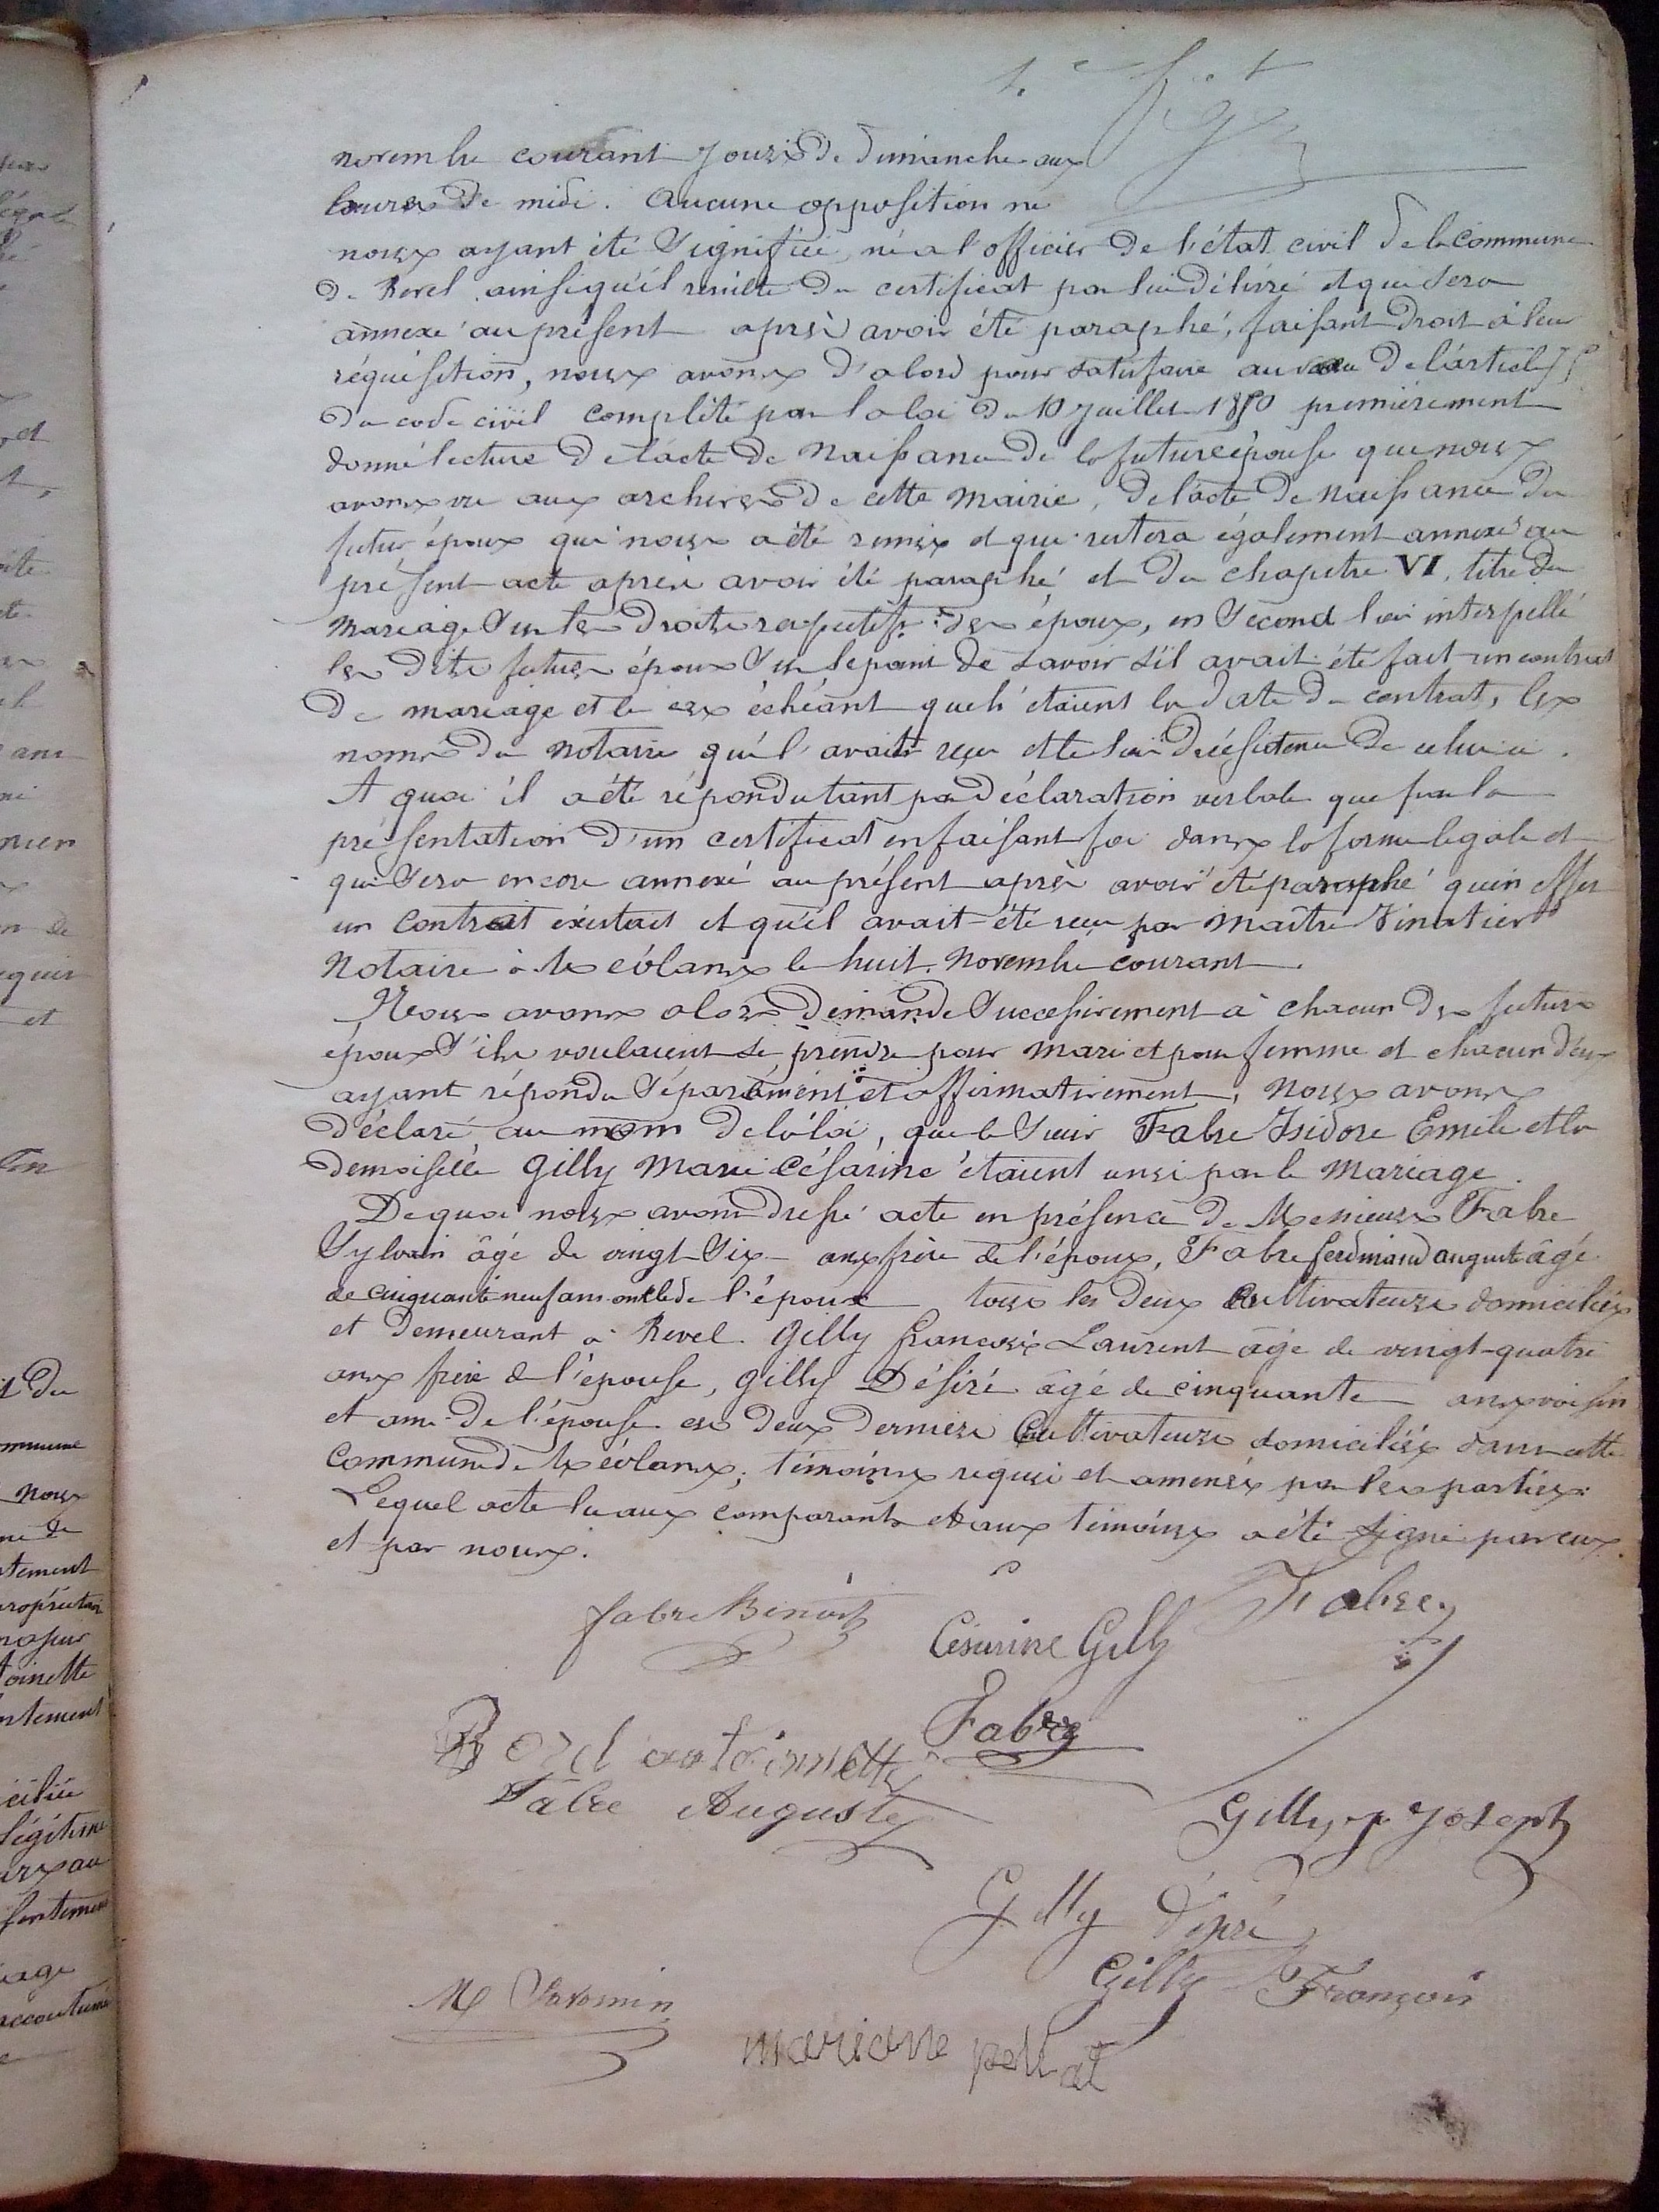 novembre courant jours de dimanche aux
heures de midi. Aucune opposition ne
nous ayant été signifiée, ni a l'officier de l'état civil de la Commune
de Revel ainsi qu'il résulte du certificat par lui délivré et qui sera
annexé au présent après avoir été paraphé, faisant droit à leur
réquisition, nous avons d'abord pour satisfaire au vœu de l'article 75
du code civil complété par la loi du 10 juillet 1850 premièrement
donné lecture de l'acte de Naissance de la future épouse que nous
avons vu aux archives de cette Mairie, de l'acte de naissance du
futur époux qui nous a été remis et qui restera également annexé au
présent acte après avoir été paraphé et du chapitre VI, titre du
Mariage sur les droits respectifs des époux, en second lieu interpellé
les dits futurs époux sur le point de savoir s'il avait été fait un contrat
de mariage et le cas échéant quels étaient la date du contrat, les
noms du notaire qui l'avait reçu et le lieu de résidence de celui-ci.
A quoi il a été répondu tant par déclaration verbale que par la
présentation d'un certificat en faisant foi dans la forme légale et
qui sera encore annexé au présent après avoir été paraphé qu'en effet
un contrat existait et qu'il avait été reçu par Maître Vinatier
Notaire à Méolans le huit Novembre courant.
Nous avons alors demandé successivement à chacun des futurs
époux s'ils voulaient se prendre pour mari et pour femme et chacun d'eux
ayant répondu séparément et affirmativement, nous avons
déclaré au nom de la loi, que le Sieur Fabre Isidore Emile et la
demoiselle Gilly Marie Césarine étaient unis par le Mariage.
De quoi nous avons dressé acte en présence de Messieurs Fabre
Sylvain âgé de vingt-six ans frère de l'époux, Fabre ferdinand auguste âgé
de cinquante neuf ans oncle de l'époux tous les deux Cultivateurs domiciliés
et demeurant à Revel. Gilly françois Laurent âgé de vingt-quatre
ans frère de l'épouse, Gilly Désiré âgé de cinquante ans voisin
et ami de l'épouse ces deux derniers Cultivateurs domiciliés dans cette
Commune de Méolans, témoins requis et amenés par les parties.
Lequel acte lu aux comparants et aux témoins a été signé par eux
et par nous.
fabre Benoit
Césarine Gilly
Fabre
Fabre
antoinette
Fabre Auguste
Gilly Joseph
Gilly Désiré
Gilly François
mariane pellat